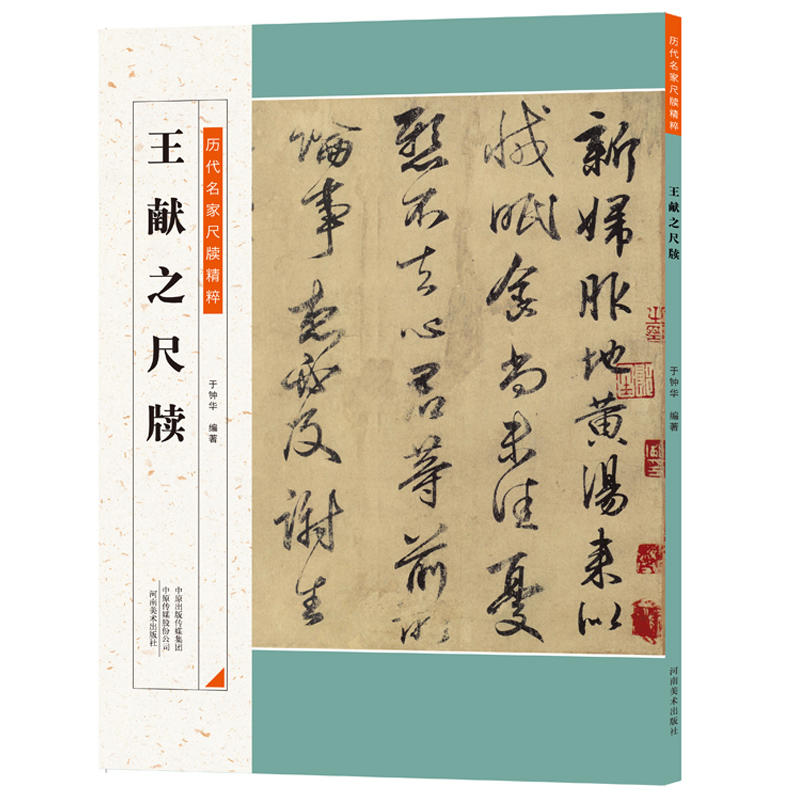 历代名家尺牍精粹
王献之尺牍
于钟华 编著
中原出版传媒集团
中原传媒股份公司
河南美术出版社
新婦服地黄湯来似
减眠食尚未佳憂
懸不去心君等前所
論事想必及謝生
历代名家尺牍精粹
王献之尺牍
于钟华 编著
河南美术出版社